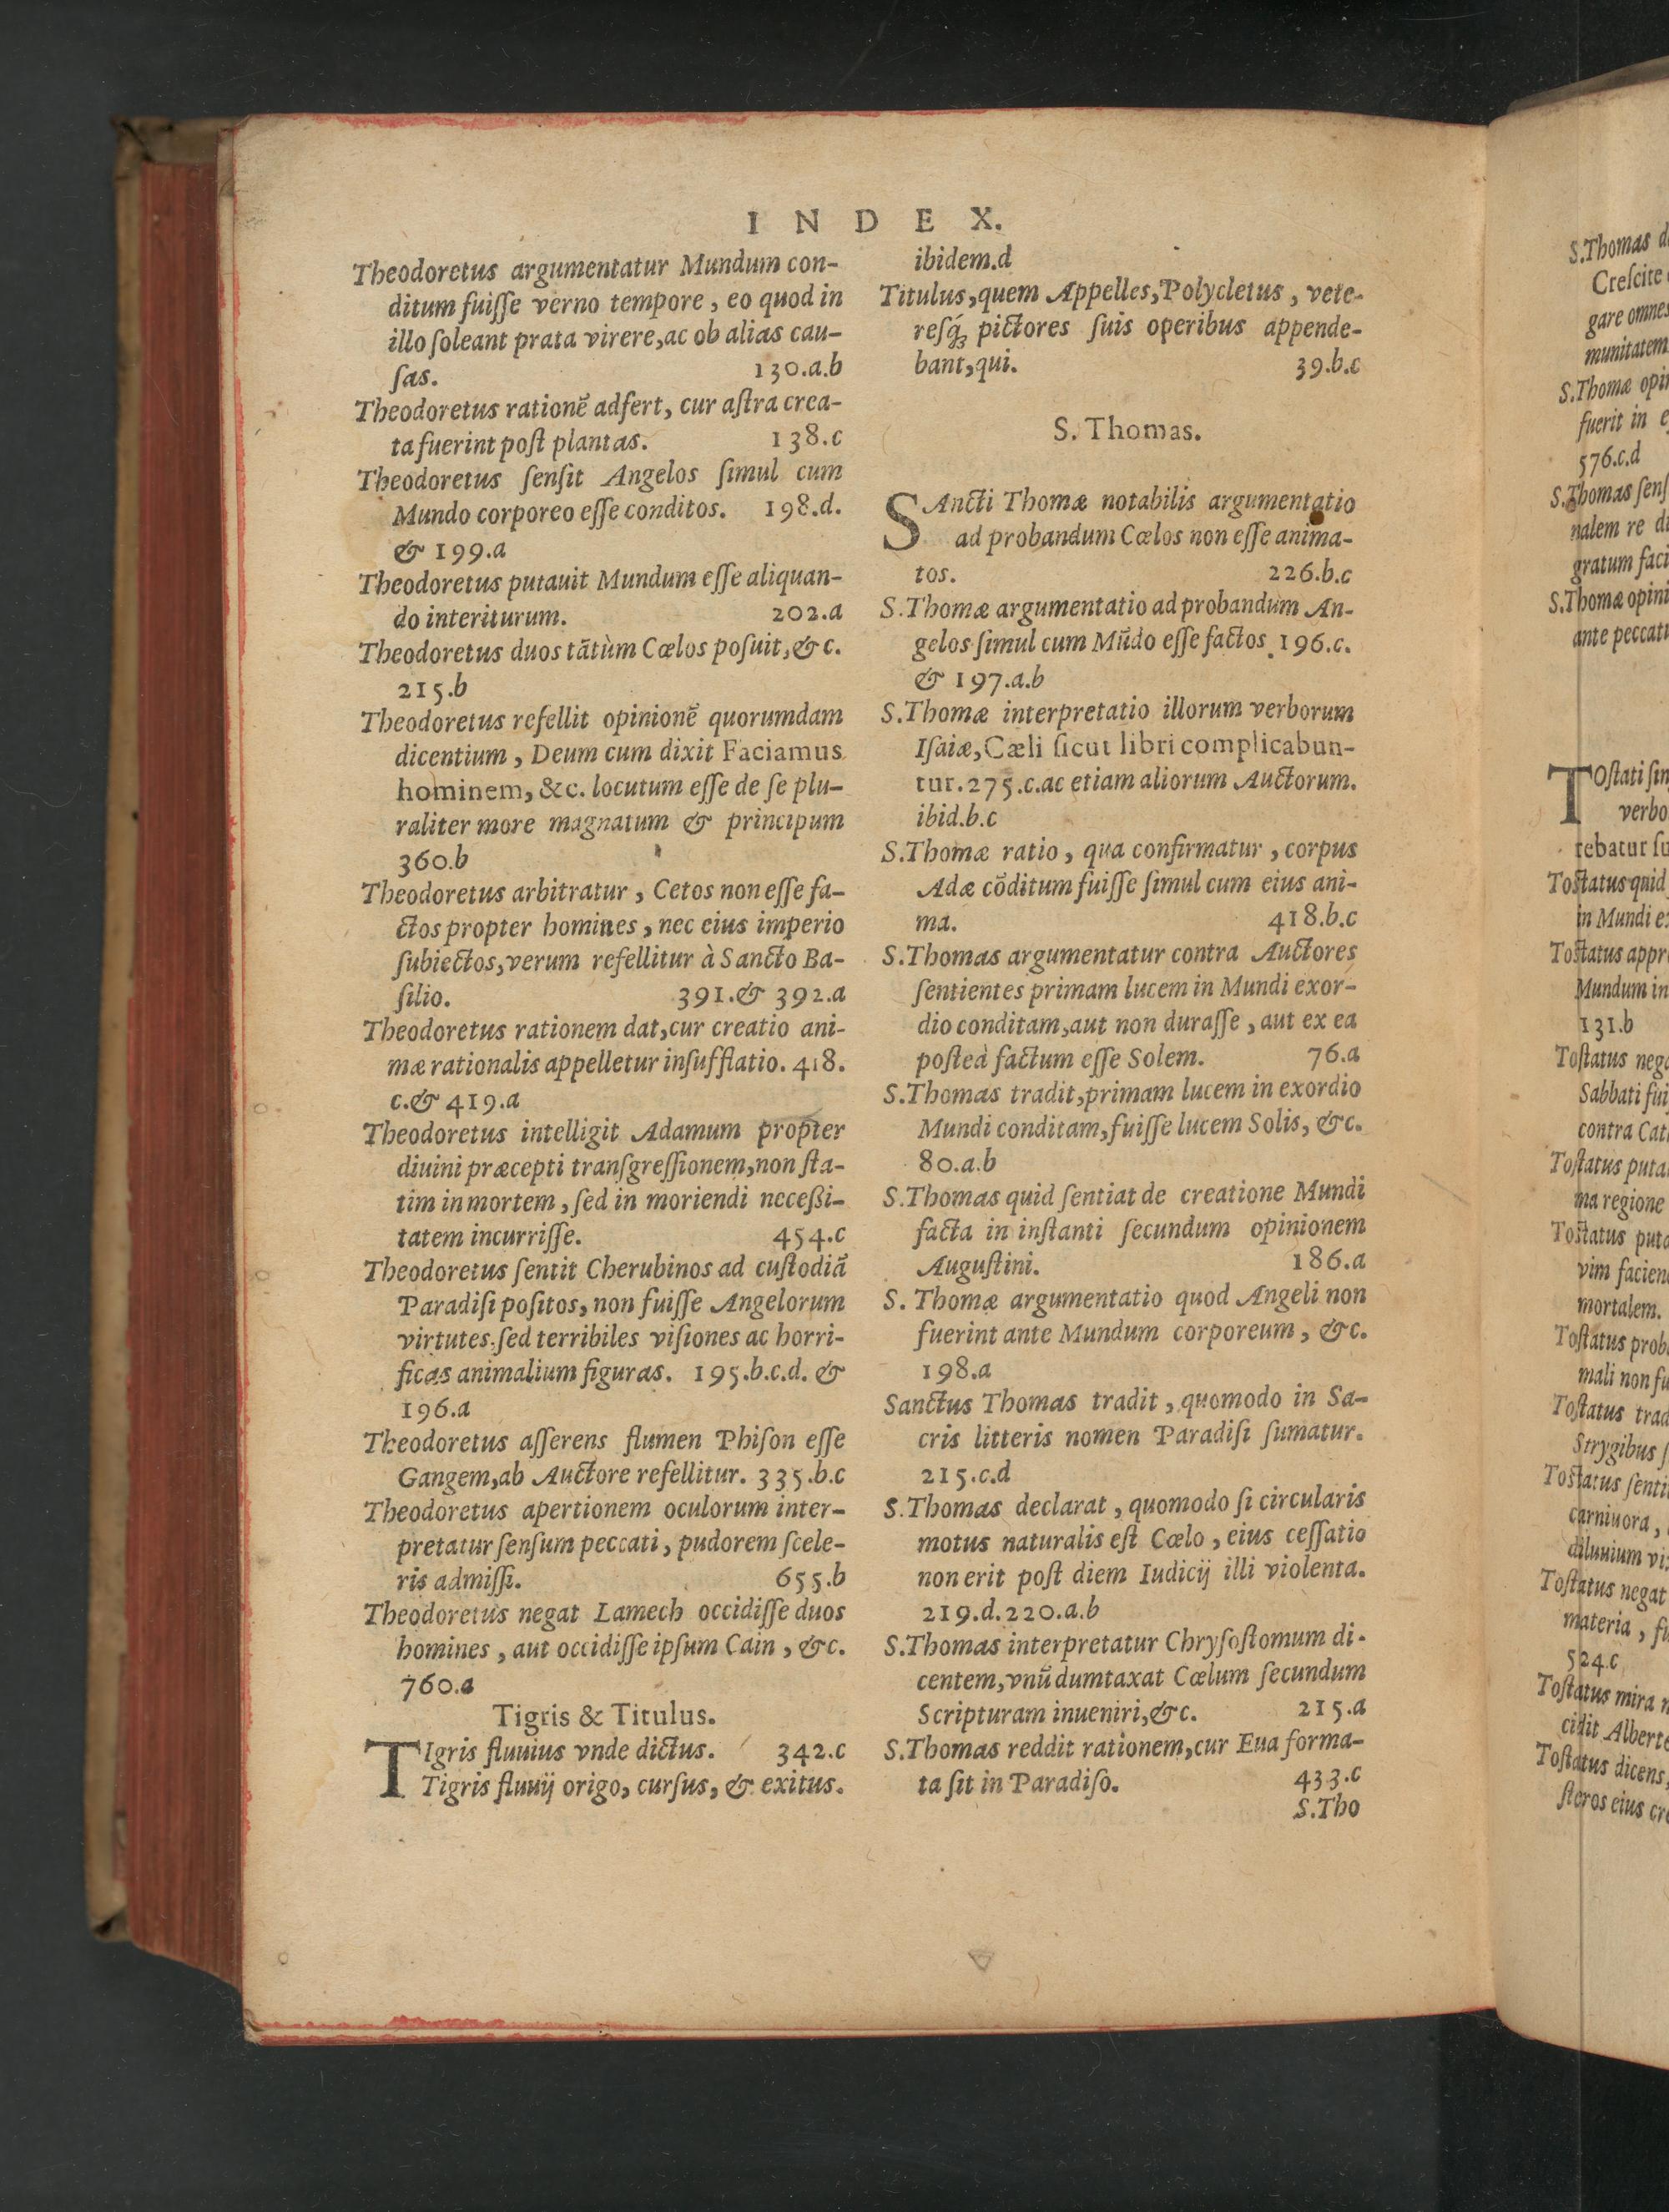 INDEX.
Theodoretus argumentatur Mundum con-
ditum fuiſſe verno tempore, eo quod in
illo ſoleant prata virere, ac ob alias cau-
ſas. 130.a.b
Theodoretus rationẽ adfert, cur aſtra crea-
ta fuerint poſt plantas. 138.c
Theodoretus ſenſit Angelos ſimul cum
Mundo corporeo eſſe conditos. 198.d.
& 199.a
Theodoretus putauit Mundum eſſe aliquan-
do interiturum. 202.a
Theodoretus duos tãtùm Cœlos poſuit, &c.
215.b
Theodoretus refellit opinionẽ quorumdam
dicentium, Deum cum dixit Faciamus
hominem, &c. locutum eſſe de ſe plu-
raliter more magnatum & principum
360.b
Theodoretus arbitratur, Cetos non eſſe fa-
ctos propter homines, nec eius imperio
ſubiectos, verum refellitur à Sancto Ba-
ſilio. 391.& 392.a
Theodoretus rationem dat, cur creatio ani-
mæ rationalis appelletur inſufflatio. 418.
c.& 419.a
Theodoretus intelligit Adamum propter
diuini præcepti tranſgreſſionem, non ſta-
tim in mortem, ſed in moriendi neceßi-
tatem incurriſſe. 454.c
Theodoretus ſentit Cherubinos ad cuſtodiã
Paradiſi poſitos, non fuiſſe Angelorum
virtutes. ſed terribiles viſiones ac horri-
ficas animalium figuras. 195.b.c.d. &
196.a
Theodoretus aſſerens flumen Phiſon eſſe
Gangem, ab Auctore refellitur. 335.b.c
Theodoretus apertionem oculorum inter-
pretatur ſenſum peccati, pudorem ſcele-
ris admiſſi. 655.b
Theodoretus negat Lamech occidiſſe duos
homines, aut occidiſſe ipſum Cain, &c.
760.a
Tigris & Titulus.
TIgris fluuius vnde dictus. 342.c
Tigris fluuij origo, curſus, & exitus.
ibidem.d
Titulus, quem Appelles, Polycletus, vete-
reſq́ꝫ pictores ſuis operibus appende-
bant, qui. 39.b.c
S. Thomas.
SAncti Thomæ notabilis argumentatio
ad probandum Cœlos non eſſe anima-
tos. 226.b.c
S. Thomæ argumentatio ad probandum An-
gelos ſimul cum Mũdo eſſe factos. 196.c.
& 197.a.b
S. Thomæ interpretatio illorum verborum
Iſaiæ, Cæli ſicut libri complicabun-
tur. 275.c. ac etiam aliorum Auctorum.
ibid.b.c
S. Thomæ ratio, qua confirmatur, corpus
Adæ cõditum fuiſſe ſimul cum eius ani-
ma. 418.b.c
S. Thomas argumentatur contra Auctores
ſentientes primam lucem in Mundi exor-
dio conditam, aut non duraſſe, aut ex ea
poſteà factum eſſe Solem. 76.a
S. Thomas tradit, primam lucem in exordio
Mundi conditam, fuiſſe lucem Solis, &c.
80.a.b
S. Thomas quid ſentiat de creatione Mundi
facta in inſtanti ſecundum opinionem
Auguſtini. 186.a
S. Thomæ argumentatio quod Angeli non
fuerint ante Mundum corporeum, &c.
198.a
Sanctus Thomas tradit, quomodo in Sa-
cris litteris nomen Paradiſi ſumatur.
215.c.d
S. Thomas declarat, quomodo ſi circularis
motus naturalis eſt Cœlo, eius ceſſatio
non erit poſt diem Iudicij illi violenta.
219.d.220.a.b
S. Thomas interpretatur Chryſoſtomum di-
centem, vnũ dumtaxat Cœlum ſecundum
Scripturam inueniri, &c. 215.a
S. Thomas reddit rationem, cur Eua forma-
ta ſit in Paradiſo. 433.c
S. Tho
S. Thomas
Creſcite
gare omnes
munitatem
S. Thomæ
fuerit in
576.c.d
S. Thomas
nalem re
gratum
S. Thomæ
ante
TOſtati
verbo
rebatur
Toſtatus quid
in Mundi
Toſtatus
Mundum in
131.b
Toſtatus
Sabbati
contra
Toſtatus
ma regione
Toſtatus
vim
mortalem.
Toſtatus
mali non
Toſtatus
Strygibus
Toſtatus
carniuora,
diluuium
Toſtatus negat
materia,
524.c
Toſtatus mira
cidit
Toſtatus dicens,
ſteros eius